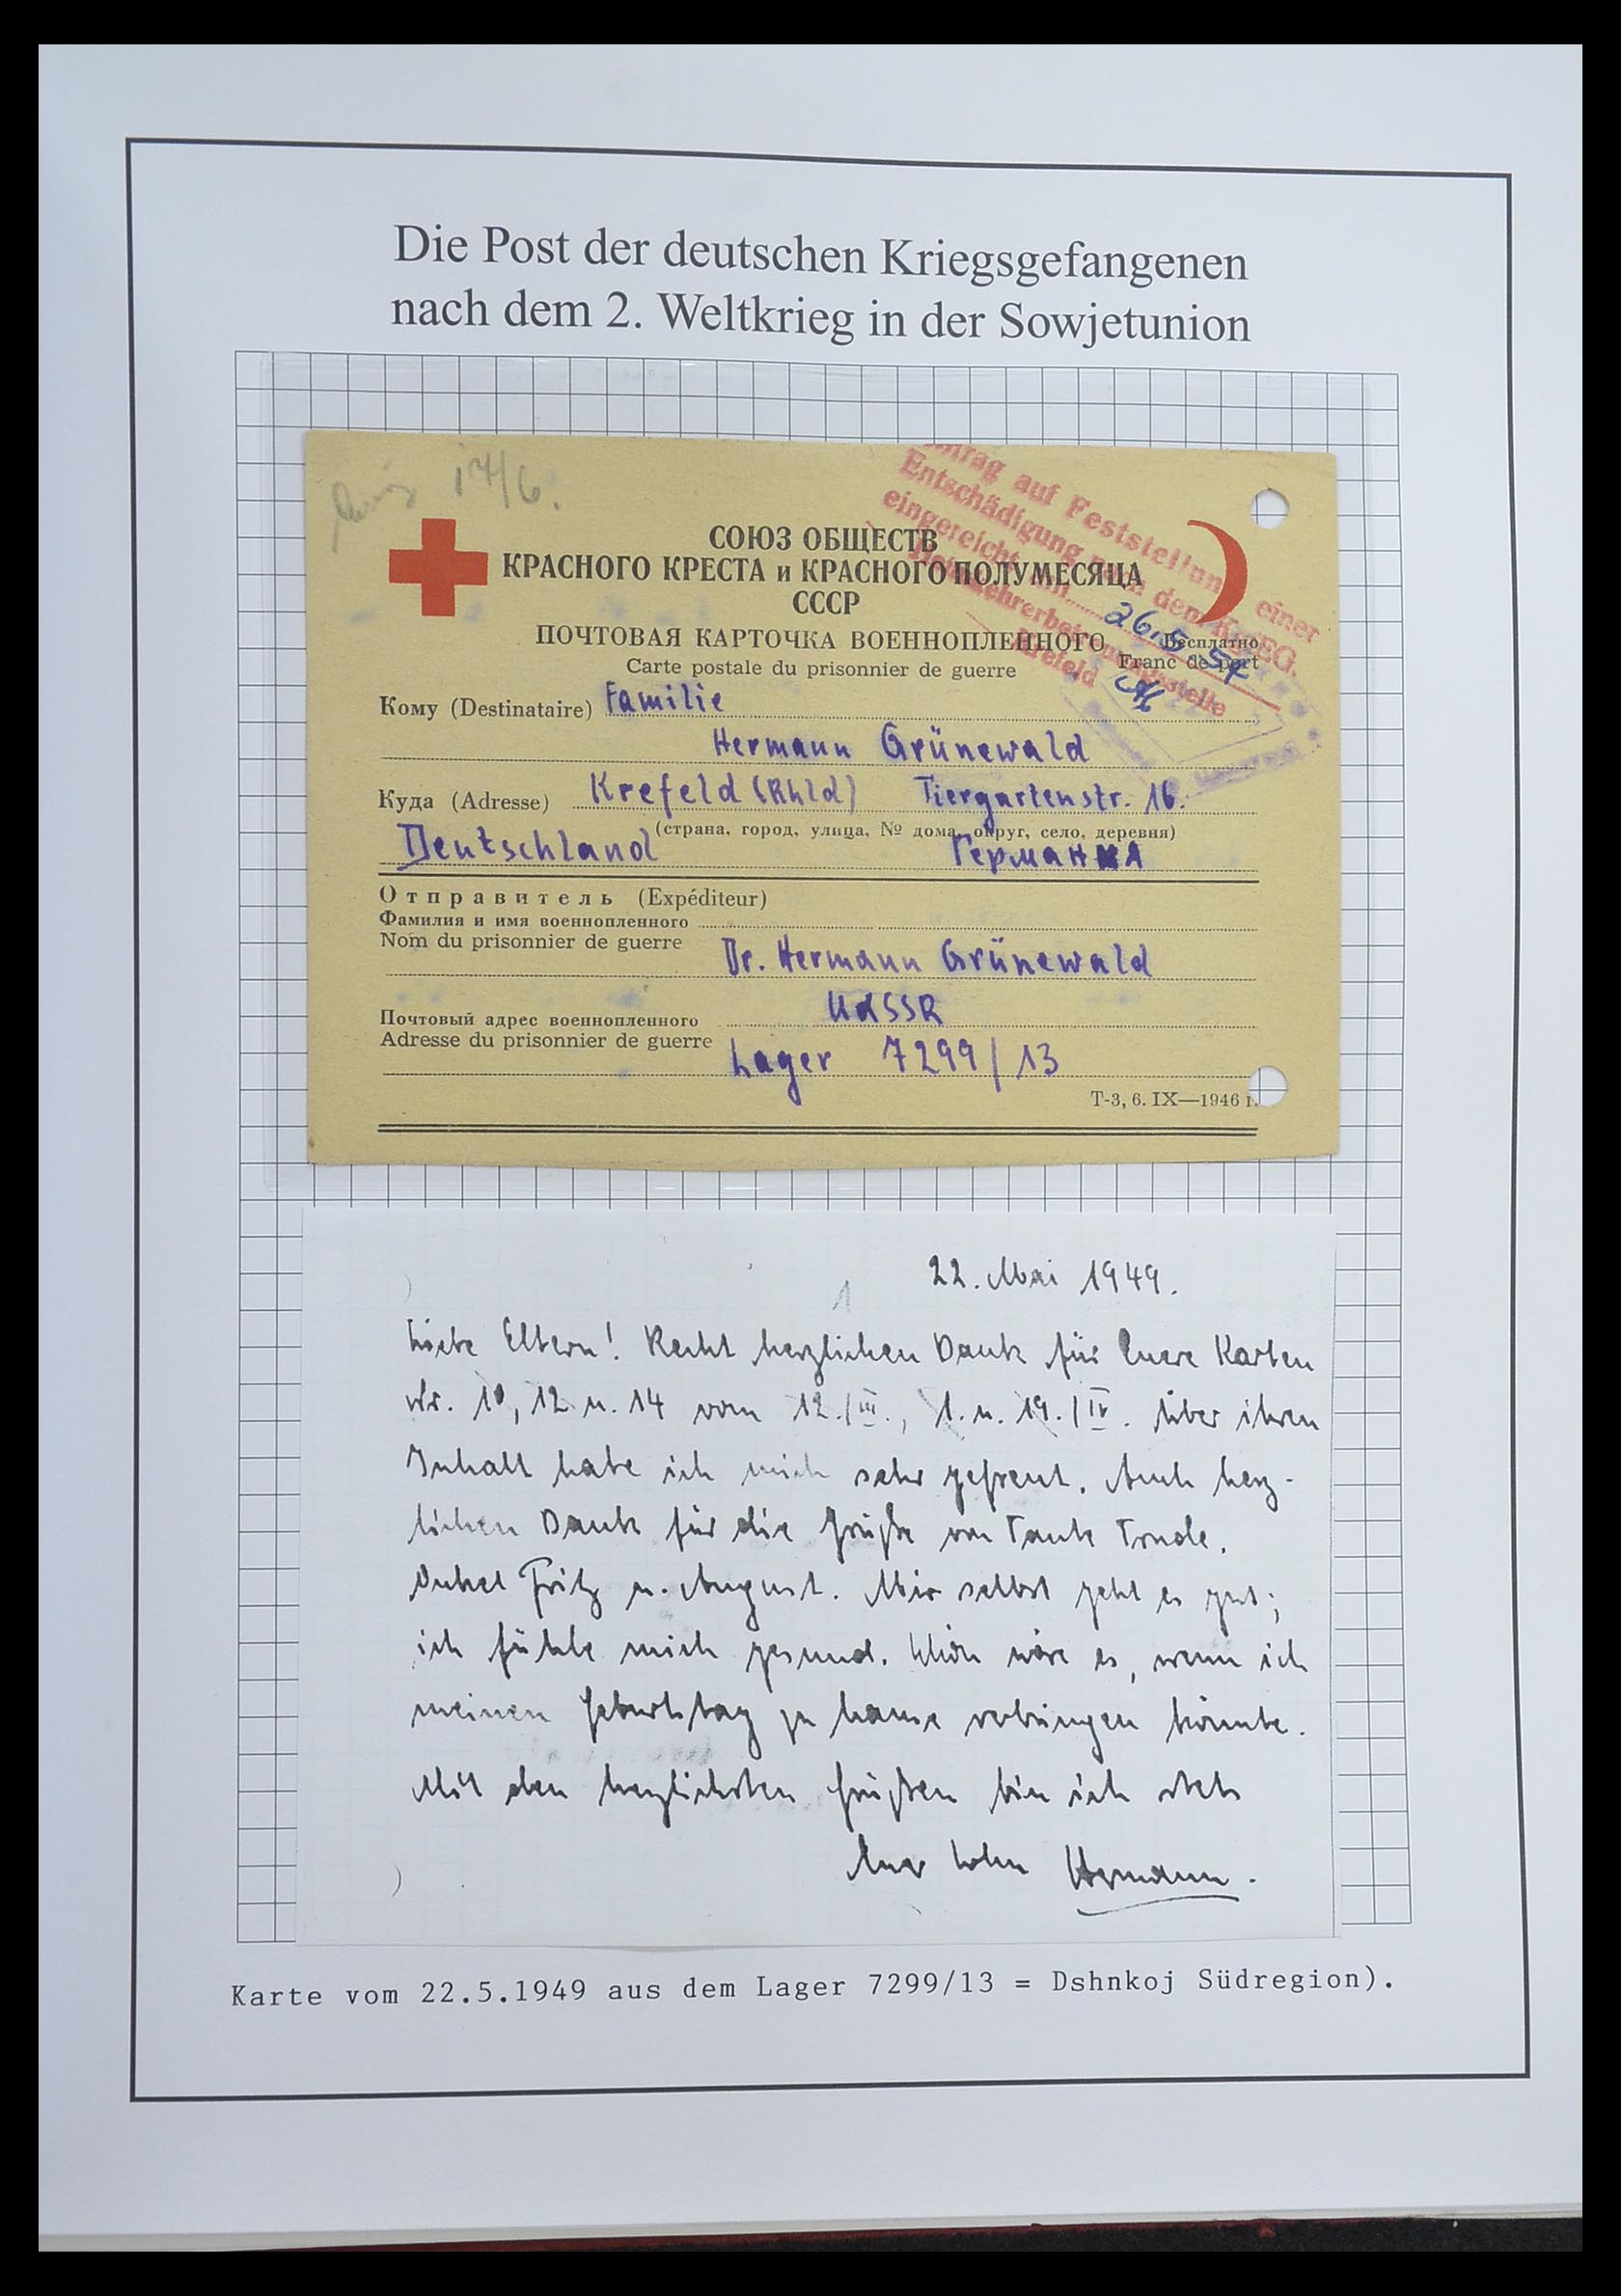 Die Post der deutschen Kriegsgefangenen
nach dem 2. Weltkrieg in der Sowjetunion
17/6.
auf Feststellung einer
Entschädigung nach dem KgfEG.
eingereicht am 26.5.54
Krefeld
СОЮЗ ОБЩЕСТВ
КРАСНОГО КРЕСТА и КРАСНОГО ПОЛУМЕСЯЦА
СССР
ПОЧТОВАЯ КАРТОЧКА ВОЕННОПЛЕННОГО Бесплатно
Carte postale du prisonnier de guerre Franc de port
Кому (Destinataire) Familie
Hermann Grünewald
Куда (Adresse) Krefeld (Rhld) Tiergartenstr. 16.
(страна, город, улица, № дома, округ, село, деревня)
Deutschland Германия
Отправитель (Expéditeur)
Фамилия и имя военнопленного
Nom du prisonnier de guerre Dr. Hermann Grünewald
UdSSR
Почтовый адрес военнопленного
Adresse du prisonnier de guerre Lager 7299/13
Т-3, 6. IX—1946 г.
22. Mai 1949.
Liebe Eltern! Recht herzlichen Dank für Euere Karten
Nr. 10, 12 u. 14 vom 12./III., 1. u. 19./IV. Über ihren
Inhalt habe ich mich sehr gefreut. Auch herz-
lichen Dank für die Grüße von Tante Trude,
Onkel Fritz u. August. Mir selbst geht es gut;
ich fühle mich gesund. Schön wäre es, wenn ich
meinen Geburtstag zu hause verbringen könnte.
Mit den herzlichsten Grüßen bin ich stets
Euer Sohn Hermann.
Karte vom 22.5.1949 aus dem Lager 7299/13 = Dshnkoj Südregion).